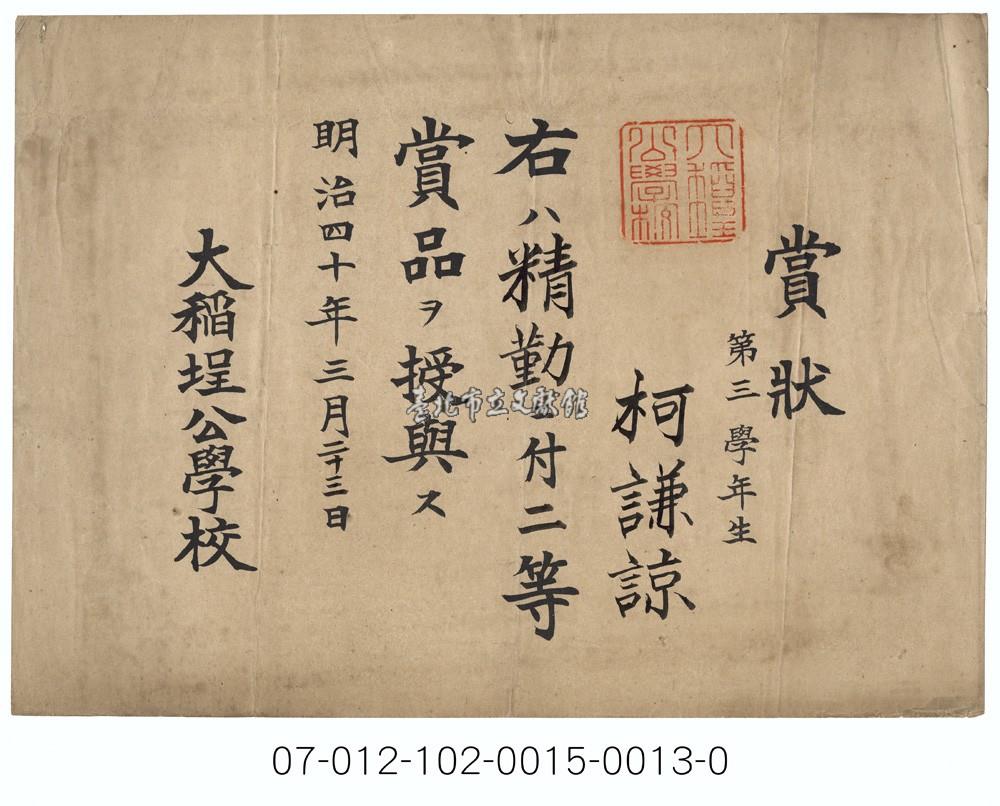 賞狀
第三學年生
柯謙諒
大稻埕公學校
右ハ精勤ニ付二等
賞品ヲ授與ス
明治四十年三月二十三日
大稻埕公學校
臺北市立文獻館
07-012-102-0015-0013-0